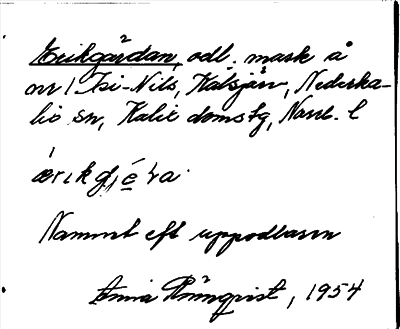 Erikgårdan, odl. mark å
nr 1 Isi-Nils, Kälsjärv, Nederka-
lix sn, Kalix domstg, Norrb. l
ærikgjɛ́ʈa
Namnet eft uppodlaren
Anna Rönnqvist, 1954